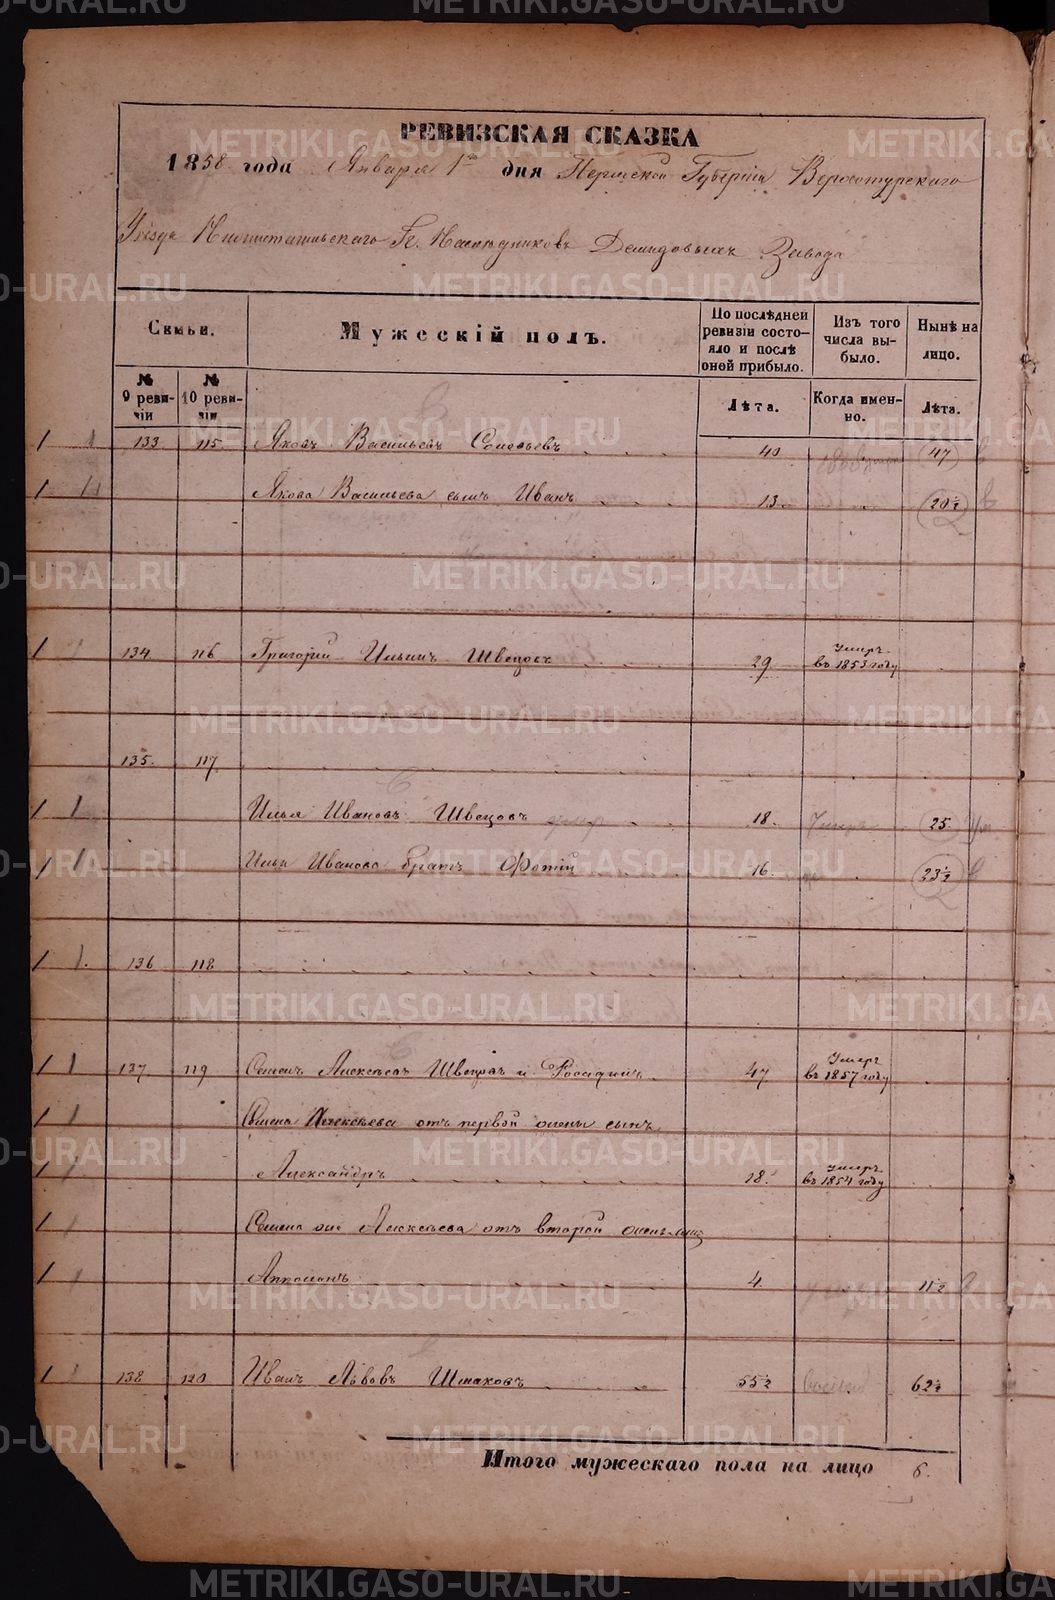 РЕВИЗСКАЯ СКАЗКА
1858 года Января 1го дня Пермской Губерніи Верхотурскаго
Уѣзда Нижнетагильскаго Гг. Наслѣдниковъ Демидовыхъ Завода
Семьи.
Мужескій полъ.
По послѣдней ревизіи состо-
яло и послѣ
оней прибыло.
Изъ того
числа вы-
было.
Нынѣ на
лицо.
№
9 реви-
зіи
№
10 реви-
зіи
Лѣта.
Когда имен-
но.
Лѣта.
133 115 Яковъ Васильевъ Соловьевъ 40 47
Якова Васильева сынъ Иванъ 13 20½
134 116 Григорій Ильинъ Швецовъ 29 Умеръ
въ 1853 году
135 117
Илья Ивановъ Швецовъ 18 Умеръ 25
Ильи Иванова братъ Фотій 16 23½
136 118
137 119 Семенъ Алексѣевъ Швецовъ и Розадѣинъ 47 Умеръ
въ 1857 году
Семена Алексѣева отъ первой жены сынъ
Александръ 18 Умеръ
въ 1854 году
Семена же Алексѣева отъ второй жены сынъ
4 11½
138 120 Иванъ Львовъ 55½ 62½
Итого мужескаго пола на лицо 6.
METRIKI.GASO-URAL.RU